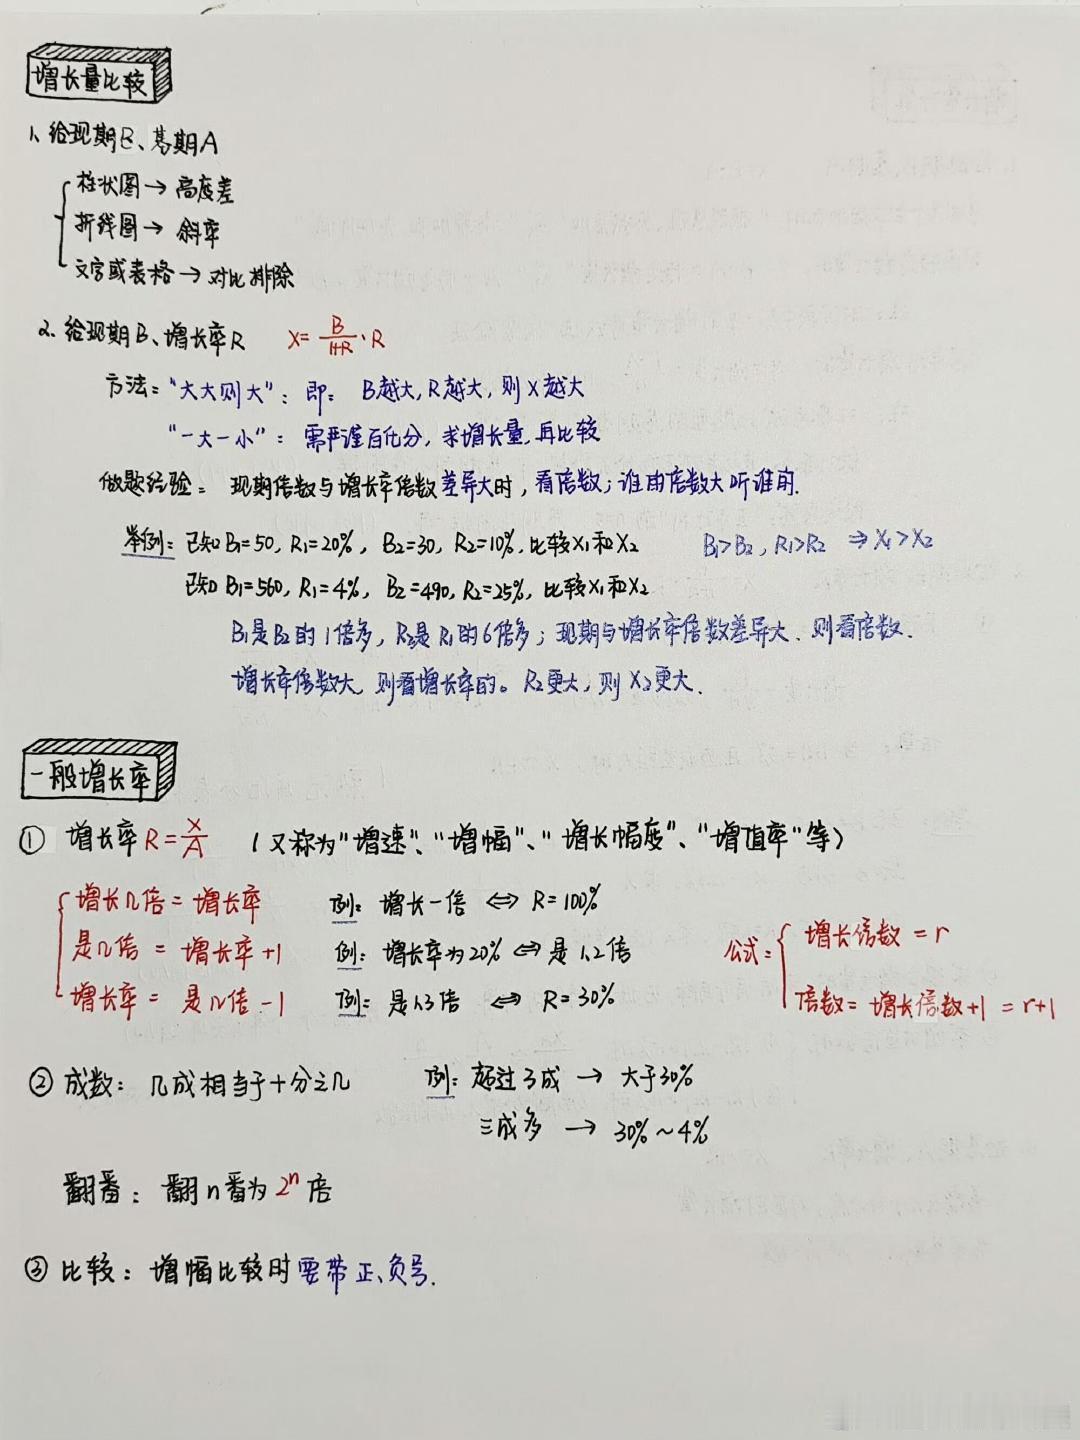 增长量比较
1、给现期B、基期A
柱状图→高度差
折线图→斜率
文字或表格→对比排除
2. 给现期B、增长率R X=B/(1+R)·R
方法:"大大则大":即: B越大,R越大,则X越大
"一大一小":需严谨百化分,求增长量,再比较
做题经验:现期倍数与增长率倍数差异大时,看倍数;谁的倍数大听谁的.
举例:已知B₁=50,R₁=20%,B₂=30,R₂=10%,比较X₁和X₂ B₁>B₂,R₁>R₂ ⇒X₁>X₂
已知B₁=560,R₁=4%,B₂=490,R₂=25%,比较X₁和X₂
B₁是B₂的1倍多,R₂是R₁的6倍多;现期与增长率倍数差异大.则看倍数.
增长率倍数大,则看增长率的。R₂更大,则X₂更大.
一般增长率
① 增长率R=X/A (又称为"增速"、"增幅"、"增长幅度"、"增值率"等)
增长几倍=增长率 例:增长一倍⇔R=100%
是几倍=增长率+1 例:增长率为20%⇔是1.2倍
增长率=是几倍-1 例:是1.3倍⇔R=30%
公式:增长倍数=r
倍数=增长倍数+1=r+1
② 成数:几成相当于十分之几 例:超过3成→大于30%
三成多→30%~4%
翻番:翻n番为2ⁿ倍
③ 比较:增幅比较时要带正、负号.